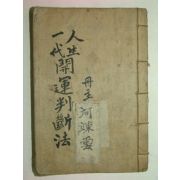 人生
一代
開運判斷法
冊主 河